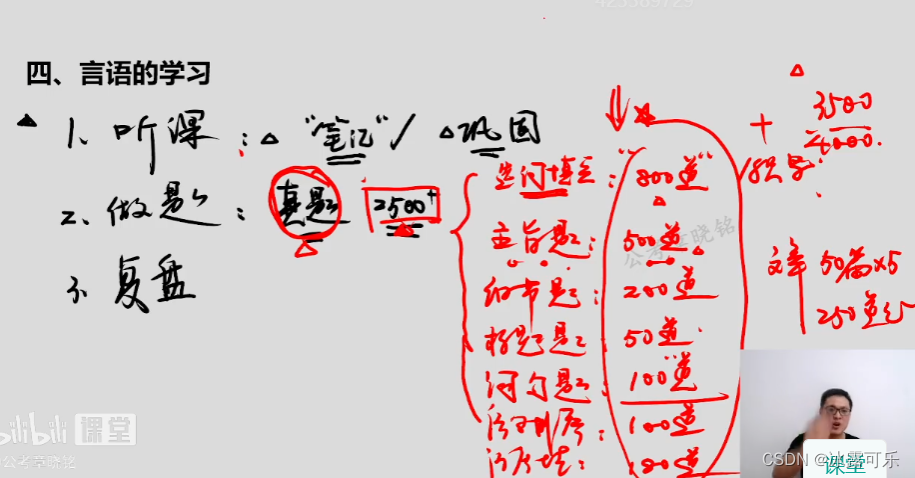 四、言语的学习
1、听课：△"笔记"/△巩固
2、做题：真题 2500+
3、复盘
选词填空："800道"/积累
主旨题：500道
细节题：200道
标题题：50道
词句题：100道
100道
+ 3500
4000
文章 50篇×5
250道
bilibili 课堂
公考草晓铭
CSDN @冰露可乐
课堂